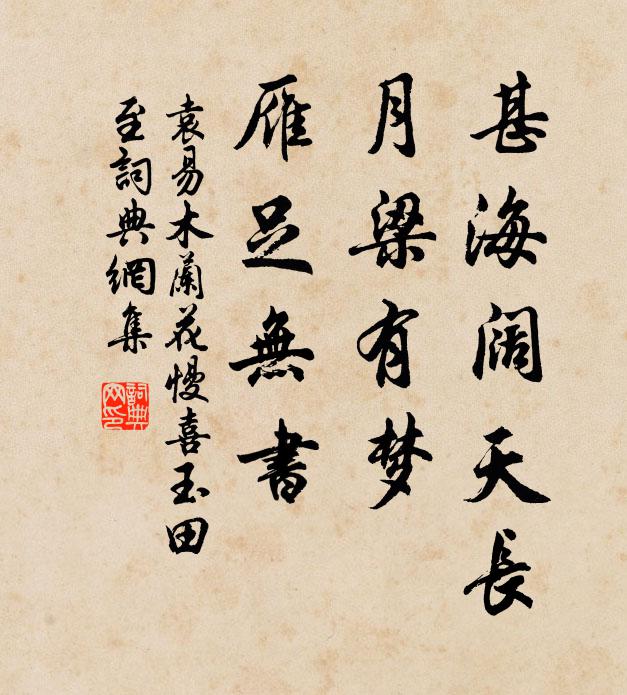 甚海阔天長
月梁有梦
雁足無書
袁易木蘭花慢喜玉田
至詞典網集
詞典网印